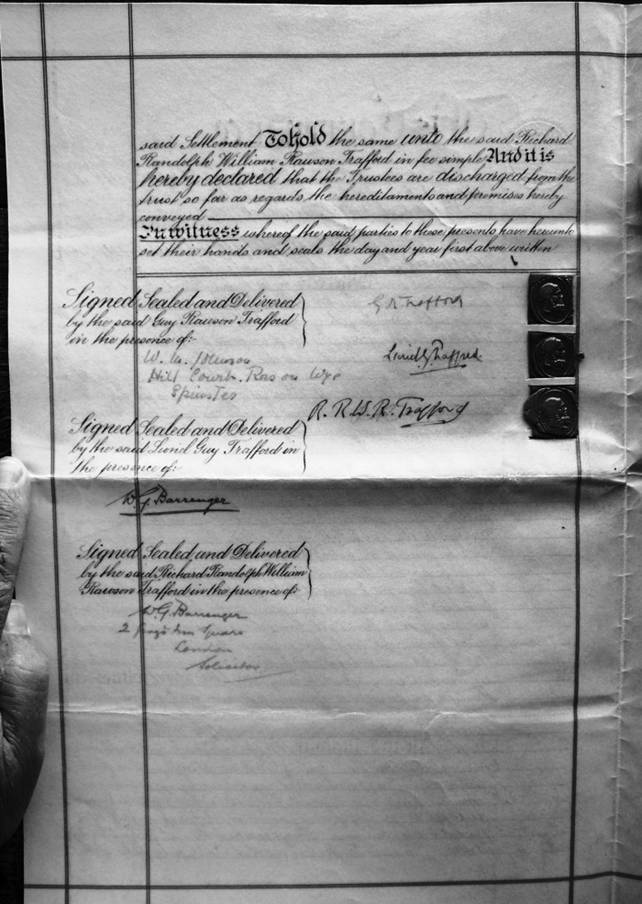 said Settlement To hold the same unto the said Richard
Randolph William Rawson Trafford in fee simple And it is
hereby declared that the Trustees are discharged from the
trust so far as regards the hereditaments and premises hereby
conveyed
In witness whereof the said parties to these presents have hereunto
set their hands and seals the day and year first above written
Signed Sealed and Delivered
by the said Guy Rawson Trafford
in the presence of:
G R Trafford
W. M.
Hill Court. Ross on Wye
Spinster
Lionel G Trafford.
R. R. W. R. Trafford
Signed Sealed and Delivered
by the said Lionel Guy Trafford in
the presence of:
W. G. Barrenger
Signed Sealed and Delivered
by the said Richard Randolph William
Rawson Trafford in the presence of:
W. G. Barrenger
2 Inn Square
London
Solicitor